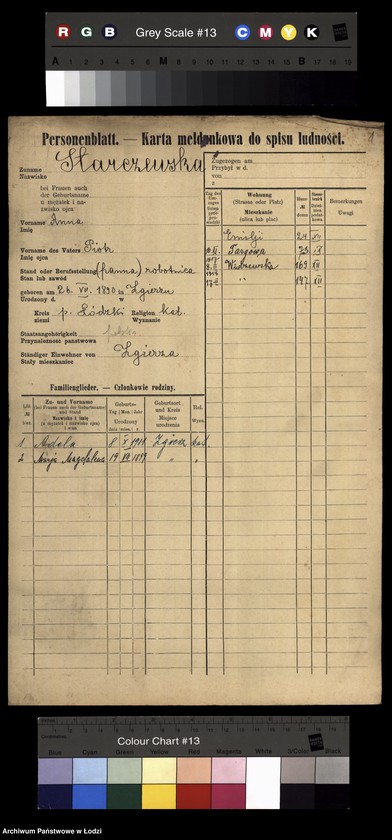 R G B Grey Scale #13 C M Y K
A 1 2 3 4 5 6 M 8 9 10 11 12 13 14 15 B 17 18 19
Personenblatt. — Karta meldunkowa do spisu ludności.
Zuname
Nazwisko Starczewska
bei Frauen auch
der Geburtsname
u mężatek i na-
zwisko ojca
Vorname Anna
Imię
Vorname des Vaters Piotr
Imię ojca
Stand oder Berufsstellung (panna) robotnica
Stan lub zawód
geboren am 26. VII. 1890 in Zgierzu
Urodzony d. w
Kreis p. Łódzki Religion kat.
ziemi Wyznanie
Staatsangehörigkeit polska
Przynależność państwowa
Ständiger Einwohner von Zgierza
Stały mieszkaniec
Zugezogen am
Przybył w d.
von
z
Wohnung
(Strasse oder Platz)
Mieszkanie
(ulica lub plac)
Haus-
№
domu
Bemerkungen
Uwagi
Emilji 24
Targowa 73
Widzewska 169
" 147
Familienglieder. — Członkowie rodziny.
Zu- und Vorname
(bei Frauen auch der Geburtsname
und Stand
Nazwisko i imię
Geburts-
Tag Mon. Jahr
Urodzony
Geburtsort
und Kreis
Miejsce
urodzenia
Rel.
Wyzn.
1 Adela 8 V Zgierz kat
2 Marja Magdalena 19 " "
Colour Chart #13
Blue Cyan Green Yellow Red Magenta White 3/Color Black
Archiwum Państwowe w Łodzi